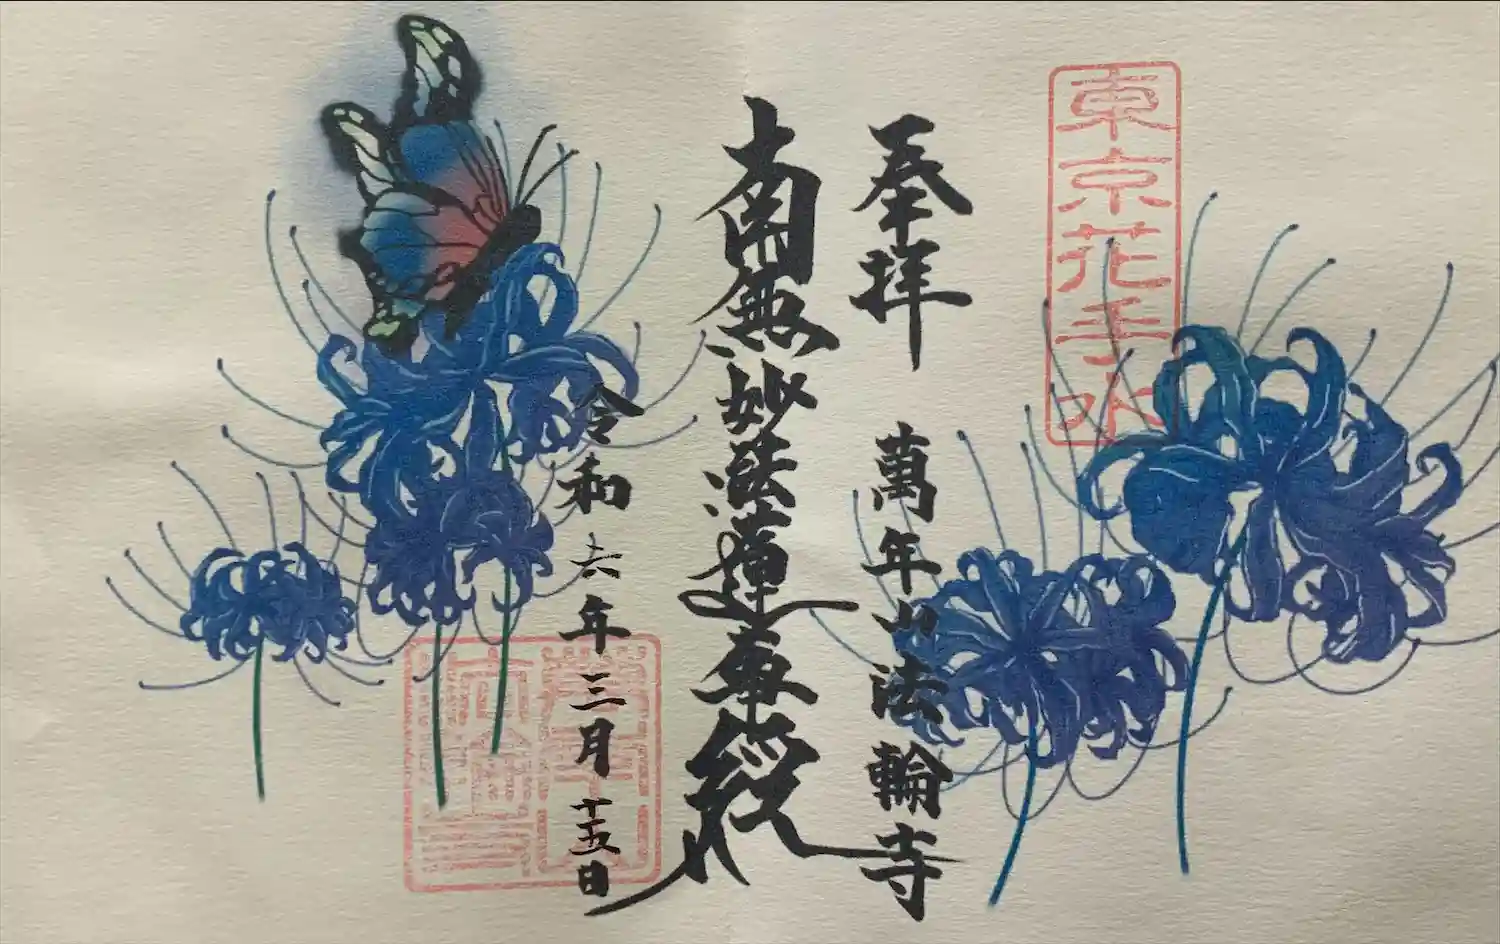 東京花手水
奉拝
萬年山法輪寺
南無妙法蓮華経
令和六年三月十五日